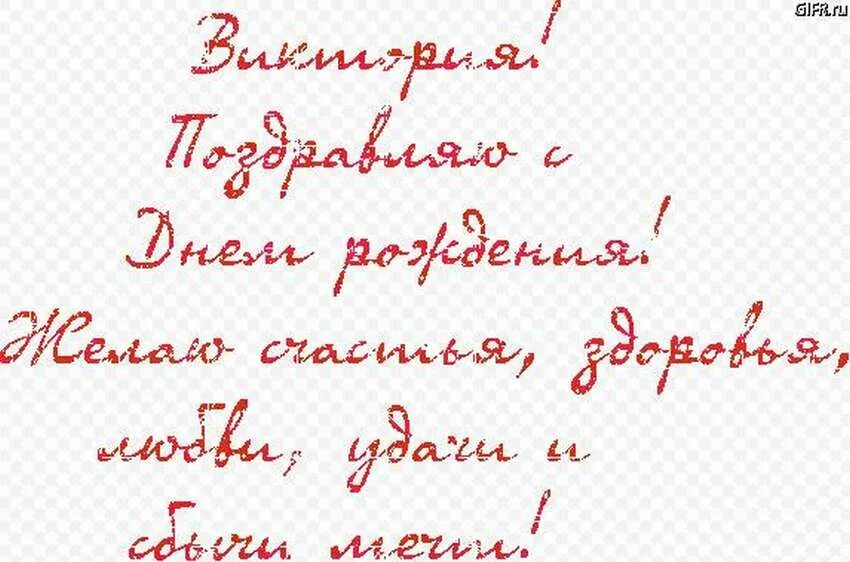 GIFR.ru
Виктория!
Поздравляю с
Днем рождения!
Желаю счастья, здоровья,
любви, удачи и
сбычи мечт!